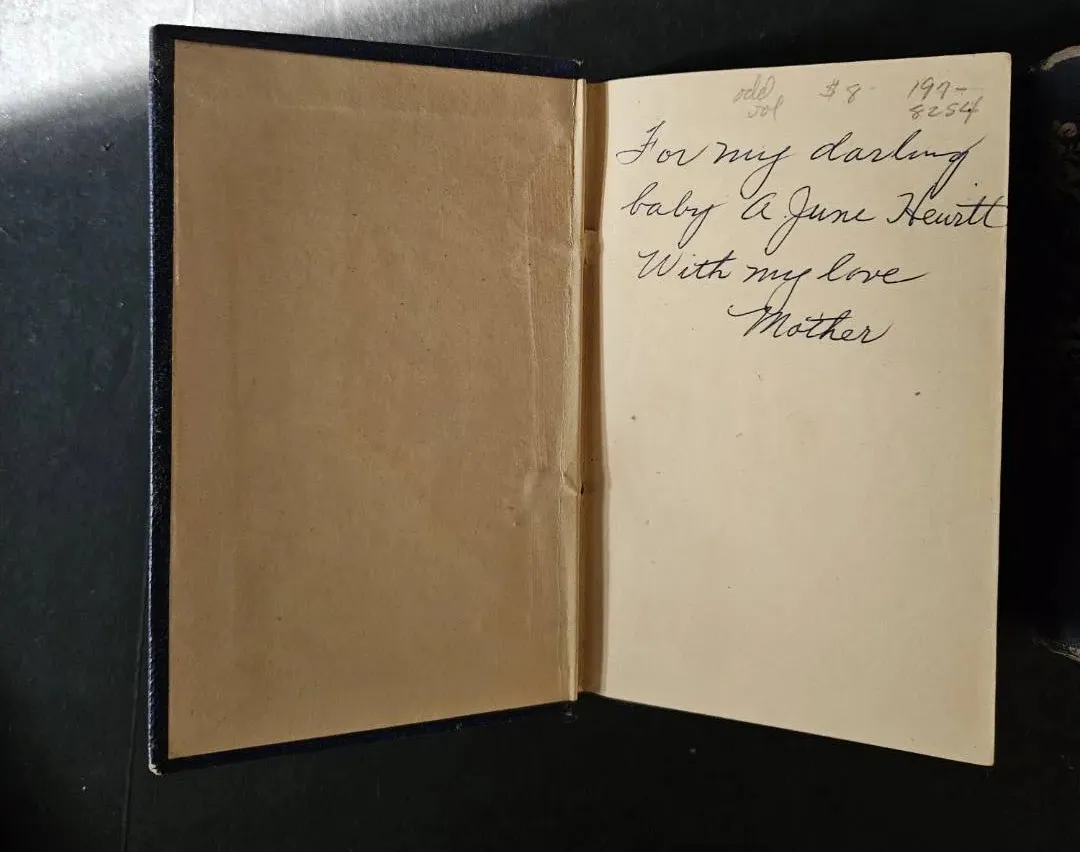 odd $8 197-
vol 8254
For my darling
baby A June Hewitt
With my love
Mother